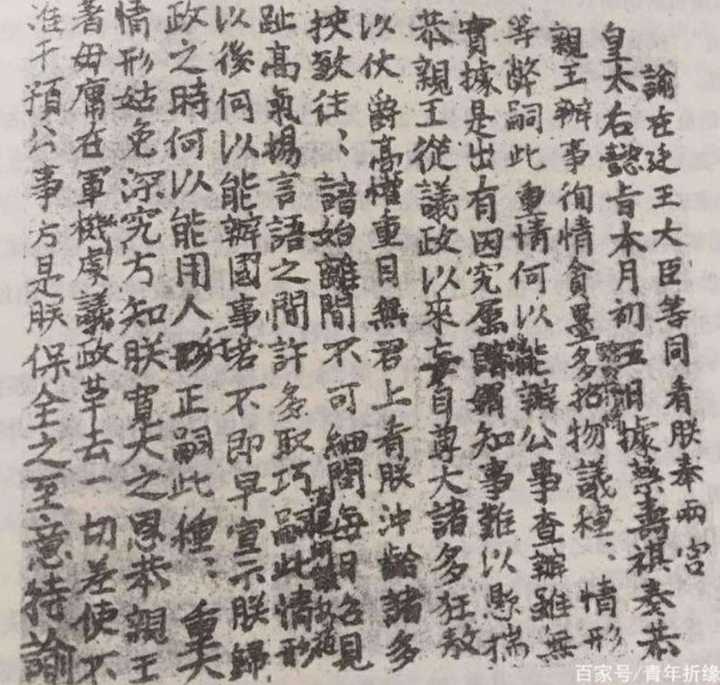 諭在廷王大臣等同看朕奉兩宮
皇太后懿旨本月初五日據蔡壽祺奏恭
親王辦事徇情貪墨多招物議種:情形
等弊嗣此重情何以能辦公事查辦雖無
實據是出有因究屬知事難以懸揣
恭親王從議政以來妄自尊大諸多狂敖
以仗爵高權重目無君上看朕沖齡諸多
挾致往:諳始離間不可細問每日召見
趾高氣揚言語之間許多取巧嗣此情形
以後何以能辦國事若不即早宣示朕歸
政之時何以能用人行正嗣此種:重大
情形姑免深究方知朕寬大之恩恭親王
著毋庸在軍機處議政革去一切差使不
准干預公事方是朕保全之至意特諭
百家号/青年折缘